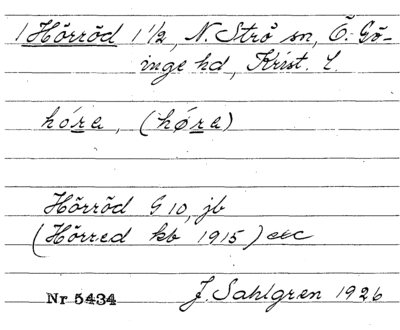 1 Hörröd 1 1/2, N. Strö sn, Ö. Gö-
inge hd, Krist. L.
hóra, (hǿra)
Hörröd G 10, jb
(Hörred kb 1915) etc
Nr 5434 J. Sahlgren 1926